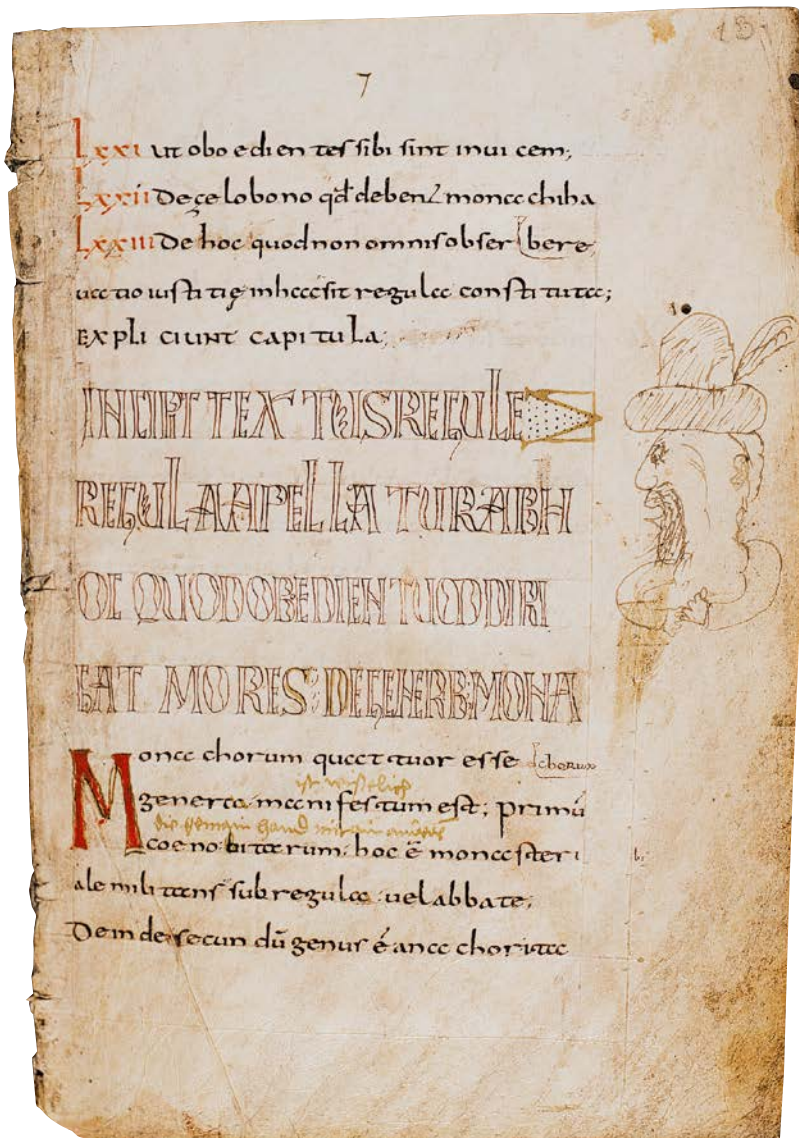 13
7
LXXI Ut oboedientes sibi sint inuicem;
LXXII De zelo bono qđ debent monachi ha
LXXIII De hoc quod non omnis obser [bere;
uatio iustitię in hac sit regula constituta;
EXPLICIUNT CAPITULA;
INCIPIT TEXTUS REGULE
REGULA APELLATUR AB H
OC QUOD OBEDIENTUM DIRI
GAT MORES: DE GENERIB· MONA
Monachorum quattuor esse [chorum
genera manifestum est; primū
coenobitarum· hoc ē monasteri
ale militans sub regula· uel abbate;
Deinde secundū genus ē anachorita